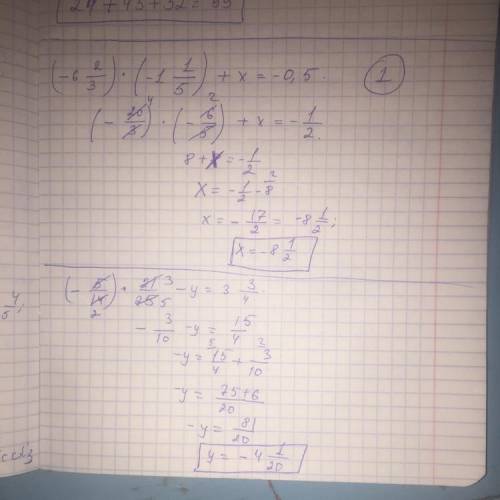 24 + 43 + 32 = 99
(-6 2/3) · (-1 1/5) + x = -0,5. 1
(-20/3)⁴ · (-6/5)² + x = -1/2.
8 + x = -1/2
x = -1/2 - 8²
x = -17/2 = -8 1/2;
x = -8 1/2
(-5/14 2) · 21 3/25 5 - y = 3 3/4.
-3/10 - y = 15/4
-y = 15⁵/4 + 3²/10
-y = 75+6/20
-y = 81/20
y = -4 1/20
4/5;